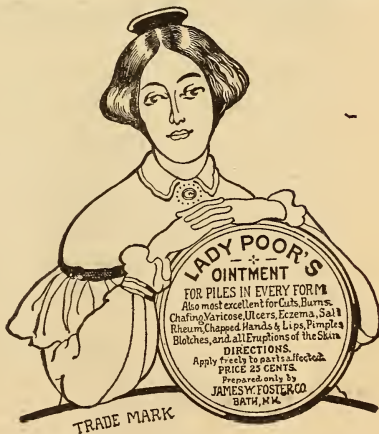 LADY POOR'S
OINTMENT
FOR PILES IN EVERY FORM
Also most excellent for Cuts, Burns
Chafing, Varicose, Ulcers, Eczema, Salt
Rheum, Chapped Hands & Lips, Pimples
Blotches, and all Eruptions of the Skin
DIRECTIONS.
Apply freely to parts affected.
PRICE 25 CENTS.
Prepared only by
JAMES W. FOSTER CO.
BATH, N.H.
TRADE MARK